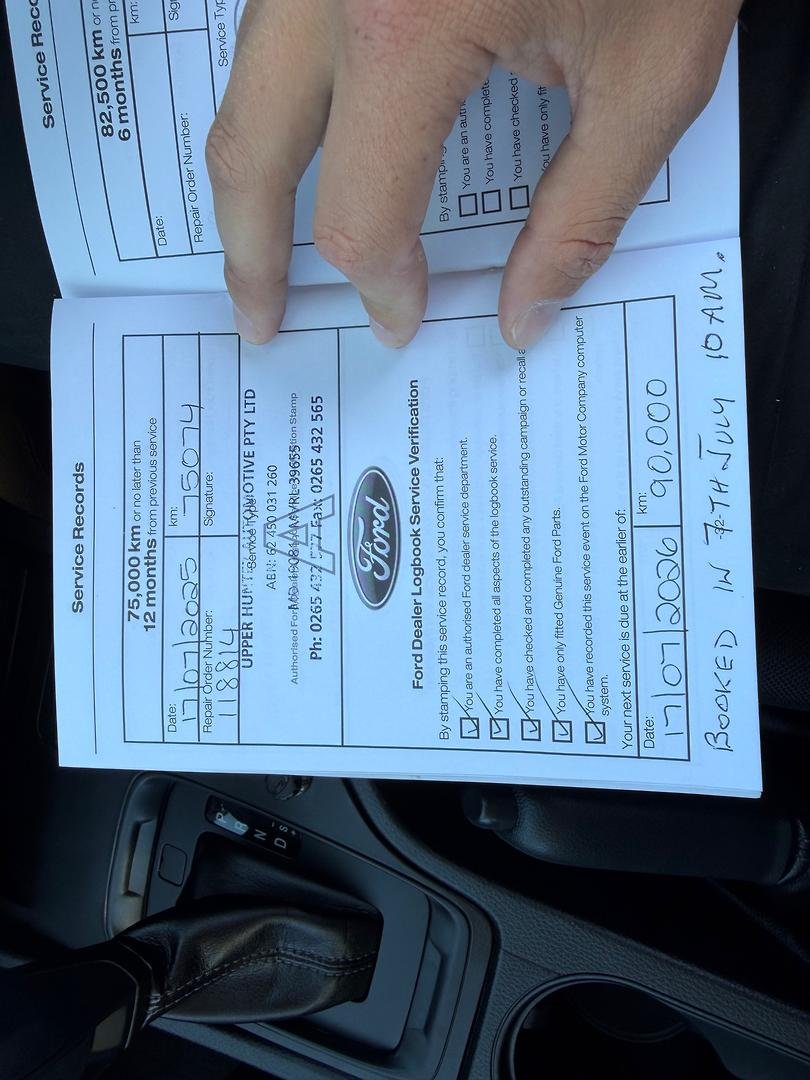 Service Records
75,000 km or no later than
12 months from previous service
Date: 17/07/2025
km: 75074
Repair Order Number: 118814
Signature:
Service Type
UPPER HUNTER AUTOMOTIVE PTY LTD
ABN: 62 450 031 260
Authorised Ford
tion Stamp
Ph: 0265 432 577 FAX: 0265 432 565
Ford
Ford Dealer Logbook Service Verification
By stamping this service record, you confirm that:
You are an authorised Ford dealer service department.
You have completed all aspects of the logbook service.
You have checked and completed any outstanding campaign or recall
You have only fitted Genuine Ford Parts.
You have recorded this service event on the Ford Motor Company computer
system.
Your next service is due at the earlier of:
Date: 17/07/2026
km: 90,000
BOOKED IN 7TH JULY 10 AM.
Service Rec
82,500 km or n
6 months from p
Date:
km:
Repair Order Number:
Sig
Service Typ
By stamping
You are an auth
You have complete
You have checked
ou have only fit
P
R
N
D S
+
-